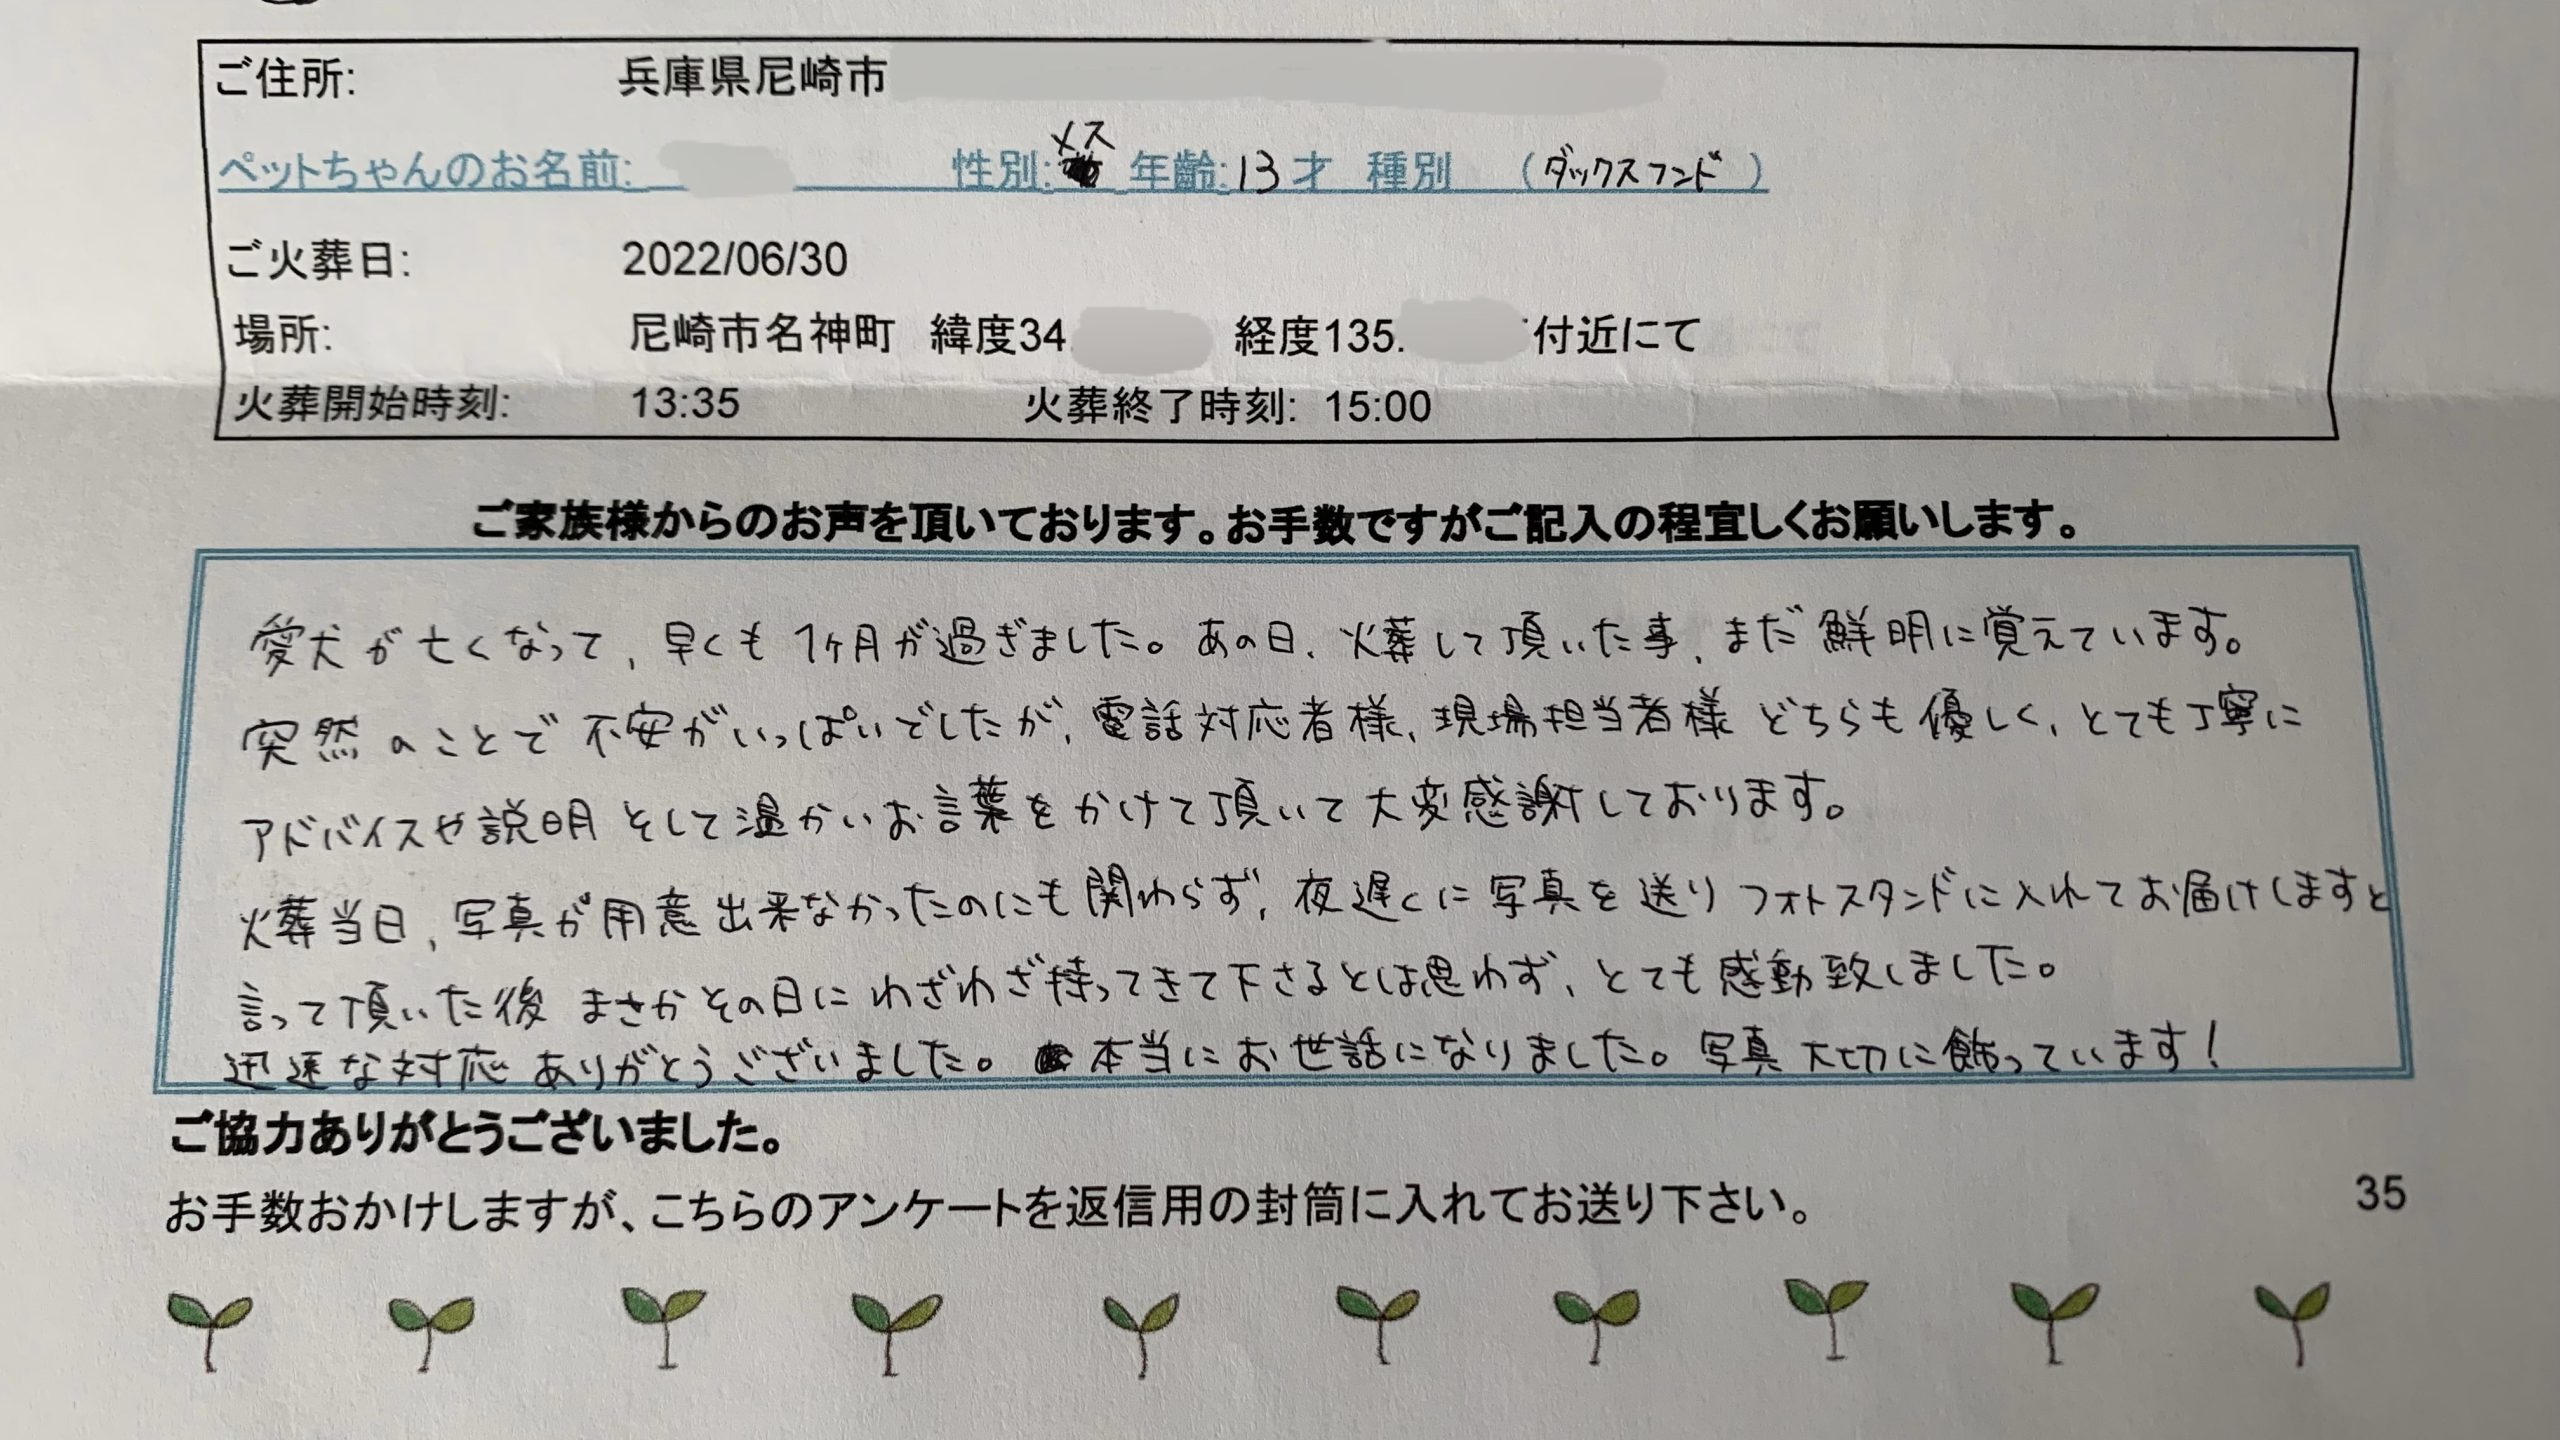 ご住所: 兵庫県尼崎市
ペットちゃんのお名前: 性別: メス 年齢: 13 才 種別 (ダックスフンド)
ご火葬日: 2022/06/30
場所: 尼崎市名神町 緯度34. 経度135. 付近にて
火葬開始時刻: 13:35 火葬終了時刻: 15:00
ご家族様からのお声を頂いております。お手数ですがご記入の程宜しくお願いします。
愛犬が亡くなって、早くも1ヶ月が過ぎました。あの日、火葬して頂いた事、まだ鮮明に覚えています。
突然のことで不安がいっぱいでしたが、電話対応者様、現場担当者様どちらも優しく、とても丁寧に
アドバイスや説明そして温かいお言葉をかけて頂いて大変感謝しております。
火葬当日、写真が用意出来なかったのにも関わらず、夜遅くに写真を送りフォトスタンドに入れてお届けしますと
言って頂いた後まさかその日にわざわざ持ってきて下さるとは思わず、とても感動致しました。
迅速な対応ありがとうございました。本当にお世話になりました。写真大切に飾っています!
ご協力ありがとうございました。
お手数おかけしますが、こちらのアンケートを返信用の封筒に入れてお送り下さい。 35